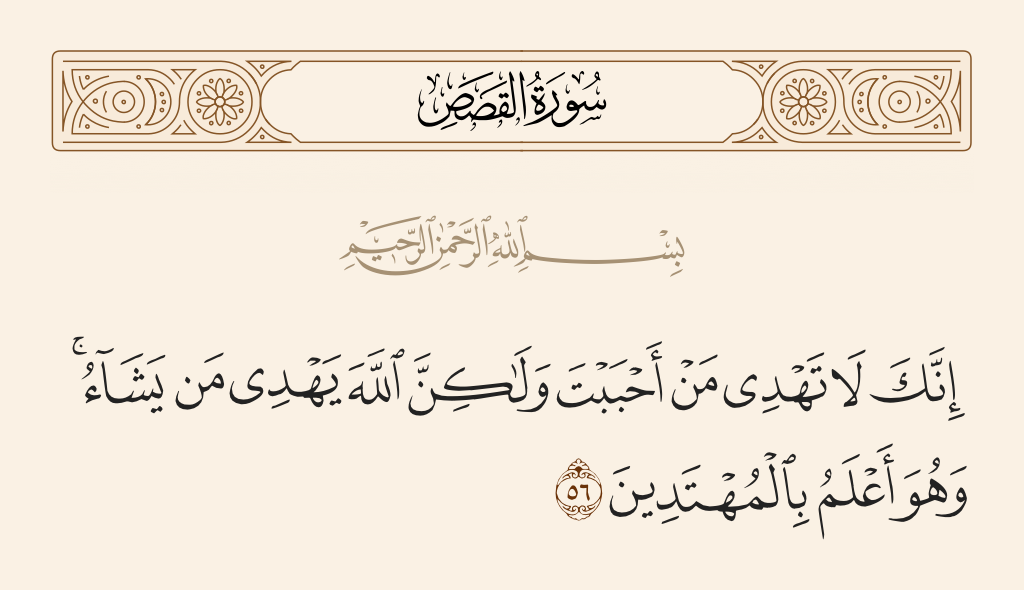 سُورَةُ القَصَصِ
بِسْمِ ٱللَّهِ ٱلرَّحْمَٰنِ ٱلرَّحِيمِ
إِنَّكَ لَا تَهْدِى مَنْ أَحْبَبْتَ وَلَٰكِنَّ ٱللَّهَ يَهْدِى مَن يَشَآءُ ۚ
وَهُوَ أَعْلَمُ بِٱلْمُهْتَدِينَ ٥٦